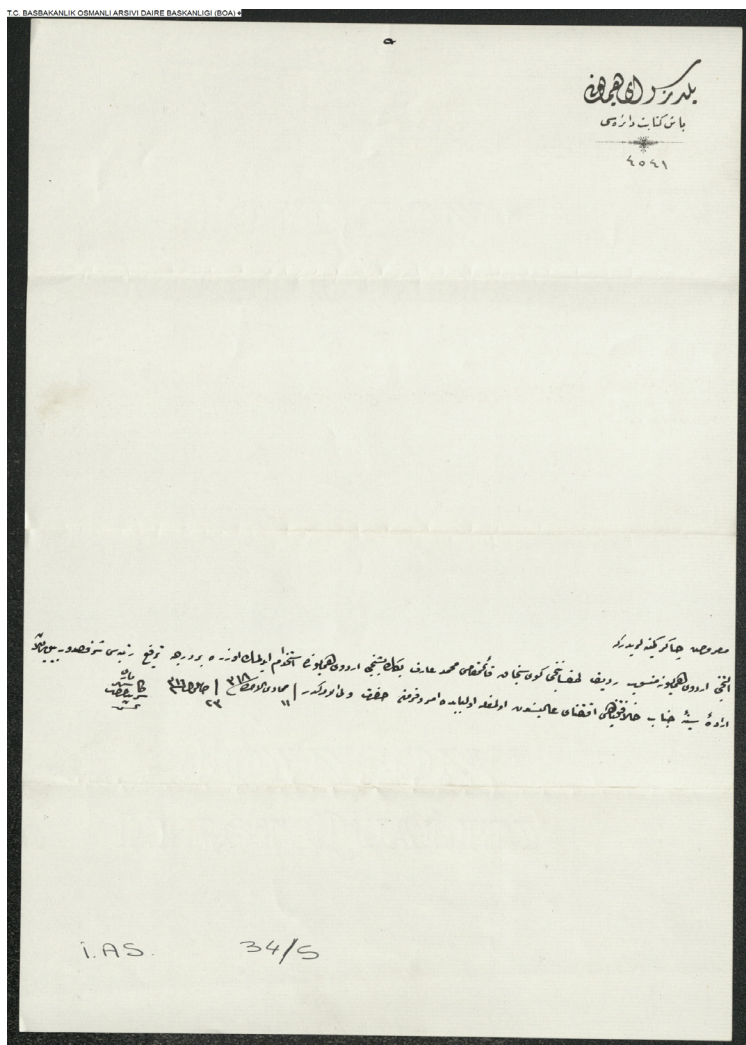 T.C. BASBAKANLIK OSMANLI ARSIVI DAIRE BASKANLIGI (BOA)
٥
يلديز سراى همايونى
باش كتابت دائره سى
٤٥٤١
معروض چاكر كمينه لريدركه
اردوى همايونه منسوب رديف قائممقامى محمد عارف بكك بشنجى اردوى همايونده استخدام ايدلمك اوزره بر درجه ترفيع رتبه سى شرفصدور بيوريلان
ارادۀ سنيۀ جناب خلافتپناهى اقتضاى عاليسندن اولمغله اولبابده امر وفرمان حضرت ولى الامركدر ١١ جمادى الاخر ٣١٨ ٢٣
İ.AS. 34/5